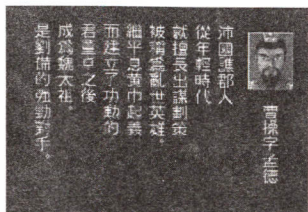 曹操字孟德
沛國譙郡人
從年輕時代
就擅長出謀劃策
被稱爲亂世英雄。
繼平息黃巾起義
而建立了功勳的
君曹丕之後
成爲魏太祖。
是劉備的強勁對手。